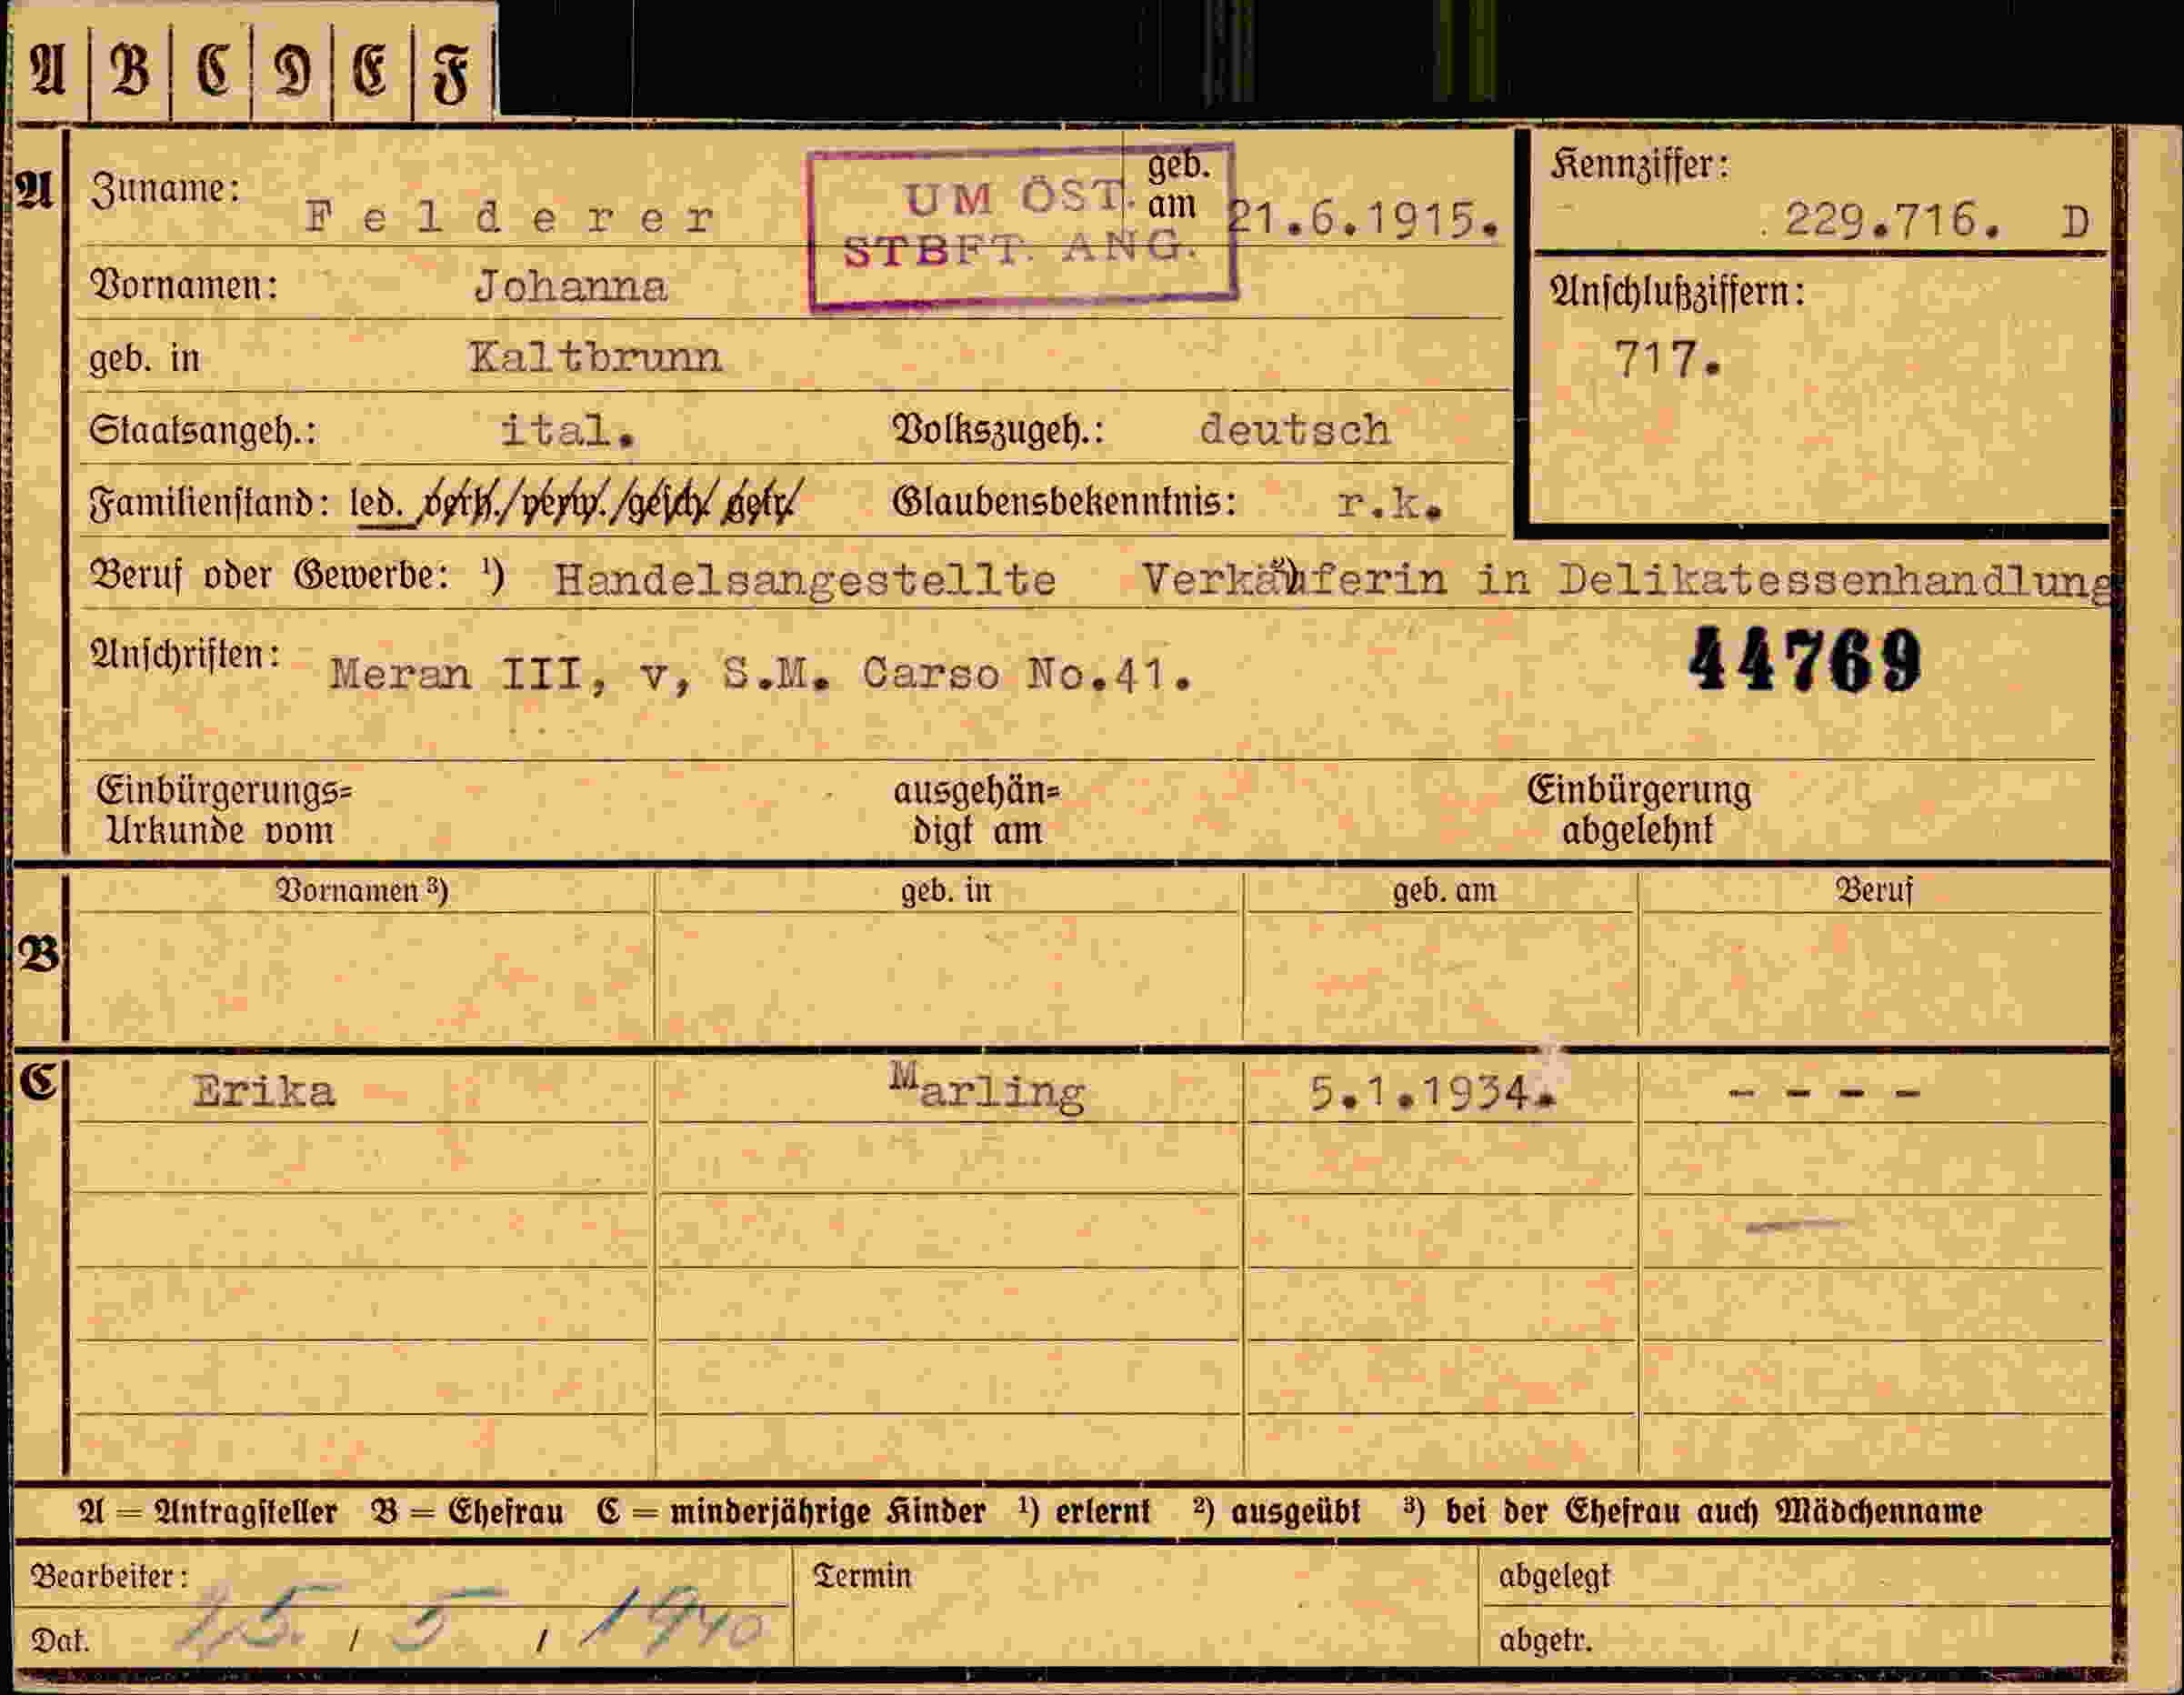 A B C D E F
A Zuname: Felderer geb. am 21.6.1915. Kennziffer: 229.716. D
UM ÖST.
STBFT. ANG.
Vornamen: Johanna Anschlußziffern:
geb. in Kaltbrunn 717.
Staatsangeh.: ital. Volkszugeh.: deutsch
Familienstand: led. verh./verw./gesch/ getr/ Glaubensbekenntnis: r.k.
Beruf oder Gewerbe: ¹) Handelsangestellte Verkäuferin in Delikatessenhandlung
Anschriften: Meran III, v, S.M. Carso No.41. 44769
Einbürgerungs= ausgehän= Einbürgerung
Urkunde vom digt am abgelehnt
Vornamen ³) geb. in geb. am Beruf
B
C Erika Marling 5.1.1934. - - - -
A = Antragsteller B = Ehefrau C = minderjährige Kinder ¹) erlernt ²) ausgeübt ³) bei der Ehefrau auch Mädchenname
Bearbeiter: Termin abgelegt
Dat. 25. / 5 / 1940 abgetr.